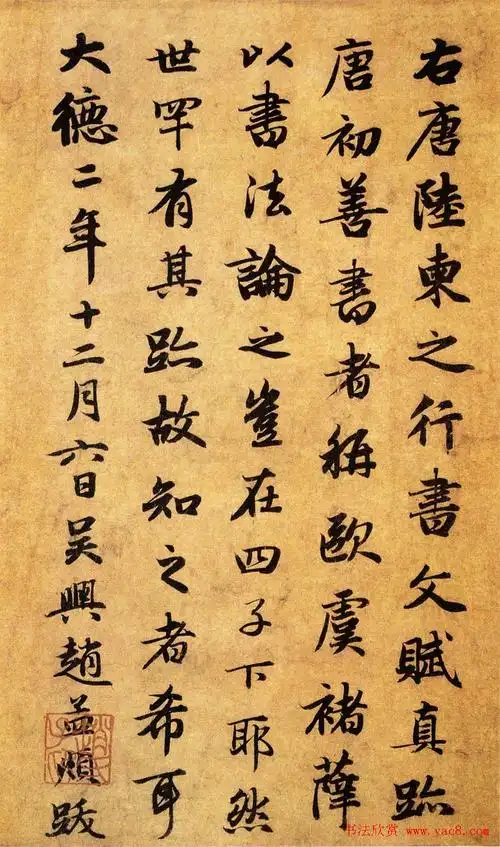 右唐陸柬之行書文賦真跡
唐初善書者稱歐虞褚薛
以書法論之豈在四子下耶然
世罕有其跡故知之者希耳
大德二年十二月六日吳興趙孟頫跋
书法欣赏 www.yac8.com